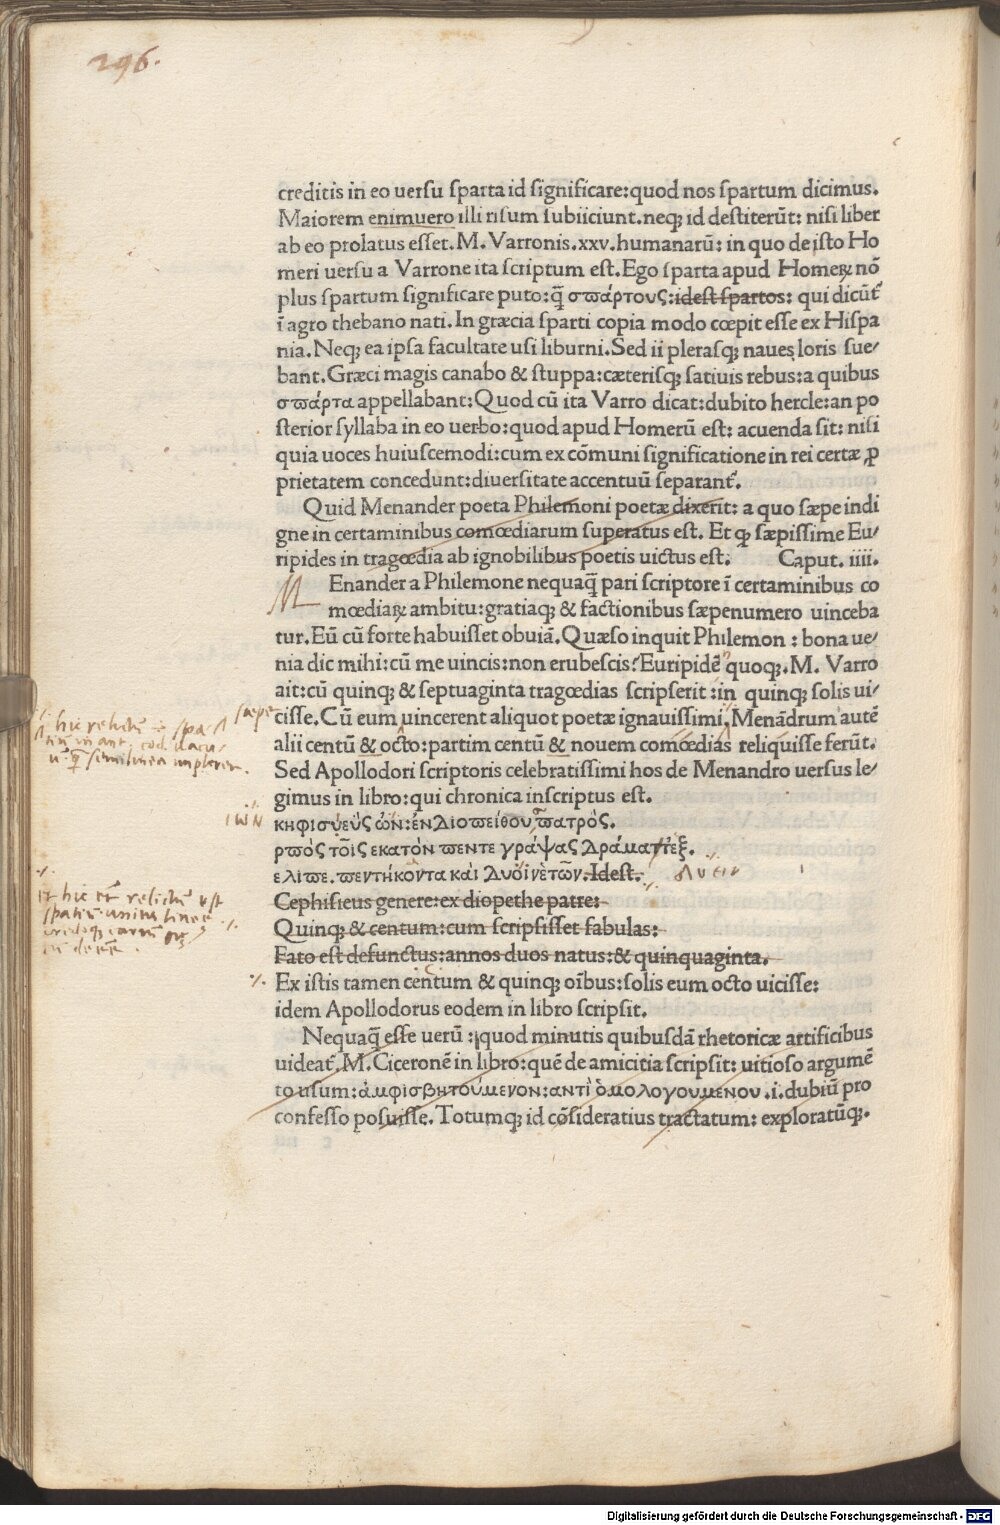 296.
creditis in eo uersu sparta id significare:quod nos spartum dicimus.
Maiorem enimuero illi risum subiiciunt.neqꝫ id destiterūt: nisi liber
ab eo prolatus esset.M.Varronis.xxv.humanarū: in quo de isto Ho
meri uersu a Varrone ita scriptum est.Ego sparta apud Homeꝝ nō
plus spartum significare puto:q̄ σπάρτους:idest spartos: qui dicūt᷑
ī agro thebano nati.In græcia sparti copia modo cœpit esse ex Hispa
nia.Neqꝫ ea ipsa facultate usi liburni.Sed ii plerasqꝫ naues loris sue/
bant.Græci magis canabo & stuppa:cæterisqꝫ satiuis rebus:a quibus
σπάρτα appellabant:Quod cū ita Varro dicat:dubito hercle:an po
sterior syllaba in eo uerbo:quod apud Homerū est: acuenda sit: nisi
quia uoces huiuscemodi:cum ex cōmuni significatione in rei certæ ꝓ
prietatem concedunt:diuersitate accentuū separant᷑.
Quid Menander poeta Philemoni poetæ dixerit: a quo sæpe indi
gne in certaminibus comœdiarum superatus est. Et ꝙ sæpissime Eu/
ripides in tragœdia ab ignobilibus poetis uictus est. Caput. iiii.
M Enander a Philemone nequaq̄ pari scriptore ī certaminibus co
mœdiaꝝ ambitu:gratiaqꝫ & factionibus sæpenumero uinceba
tur.Eū cū forte habuisset obuiā.Quæso inquit Philemon : bona ue/
nia dic mihi:cū me uincis:non erubescis?Euripidē quoqꝫ.M. Varro
ait:cū quinqꝫ & septuaginta tragœdias scripserit :in quinqꝫ solis ui/
sæpe cisse.Cū eum uincerent aliquot poetæ ignauissimi,Menādrum autē
hic relictū spa
alii centū & octo:partim centū & nouem comœdias reliquisse ferūt.
Sed Apollodori scriptoris celebratissimi hos de Menandro uersus le/
gimus in libro:qui chronica inscriptus est.
ιων κηφισυεὺς ὢν:ἐν διοπείθου πατρός.
ρπὸς τοῖς εκατὸν πεντε γράψας δράματ̓ ἐξ.
ελιπε.πεντήκοντα καὶ δυοῖν ἐτῶν.Idest. δυειν
Cephisieus genere:ex diopethe patre:
et hic relictū est
spatiū unius lineæ
Quinqꝫ & centum:cum scripsisset fabulas:
Fato est defunctus:annos duos natus:& quinquaginta.
Ex istis tamen centum & quinqꝫ oībus:solis eum octo uicisse:
idem Apollodorus eodem in libro scripsit.
Nequaq̄ esse uerū :quod minutis quibusdā rhetoricæ artificibus
uideat᷑.M.Ciceronē in libro:quē de amicitia scripsit: uitioso argumē
to usum:ἀμφισβητούμενον:αντὶ ὁμολογουμενου.i.dubiū pro
confesso posuisse.Totumqꝫ id cōsideratius tractatum: exploratūqꝫ.
Digitalisierung gefördert durch die Deutsche Forschungsgemeinschaft - DFG